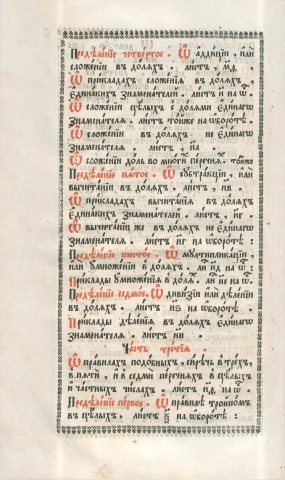 Предѣленїе четвертое. Ѿ аддицїи, или
сложенїи в доляхъ. листъ мд
Ѿ прикладахъ сложенїя въ доляхъ,
единакихъ знаменателеи. листъ и на ѿ
Ѿ сложенїи цѣлыхъ с долями единагѡ
знаменателя. листъ тойже на ѡборотѣ.
Ѿ сложенїи въ доляхъ не единагѡ
знаменателя. листъ н на
Ѿ сложенїи доль во многи перечни. тойже
Предѣленїе пятое. Ѿ субтракцїи, или
вычитанїи в доляхъ. листъ, нв
Ѿ прикладахъ вычитанїя въ доляхъ
единакихъ знаменателеи. листъ, нг
Ѿ вычитанїи же въ доляхъ не единагѡ
знаменателя. листъ нг на ѡборотѣ:
Предѣленїе шестое. Ѿ мултипликацїи,
или умноженїи в доляхъ. ли нд на ѿ:
Приклады умноженїя в доля. ли не на ѿ:
Предѣленїе седмое. Ѿ дивизїи или дѣленїи
въ доляхъ. листъ нѕ на ѡборотѣ.
Приклады дѣленїя въ доляхъ единагѡ
знаменателя. листъ ни
Часть третїя.
Ѿ правилахъ подобныхъ, сирѣчь в трехъ,
в пяти, и в седми перечняхъ в цѣлыхъ
и частныхъ числахъ. листъ нд на ѿ.
Предѣленїе первое. Ѿ правилѣ тройномъ
въ цѣлыхъ. листъ на ѡборотѣ: